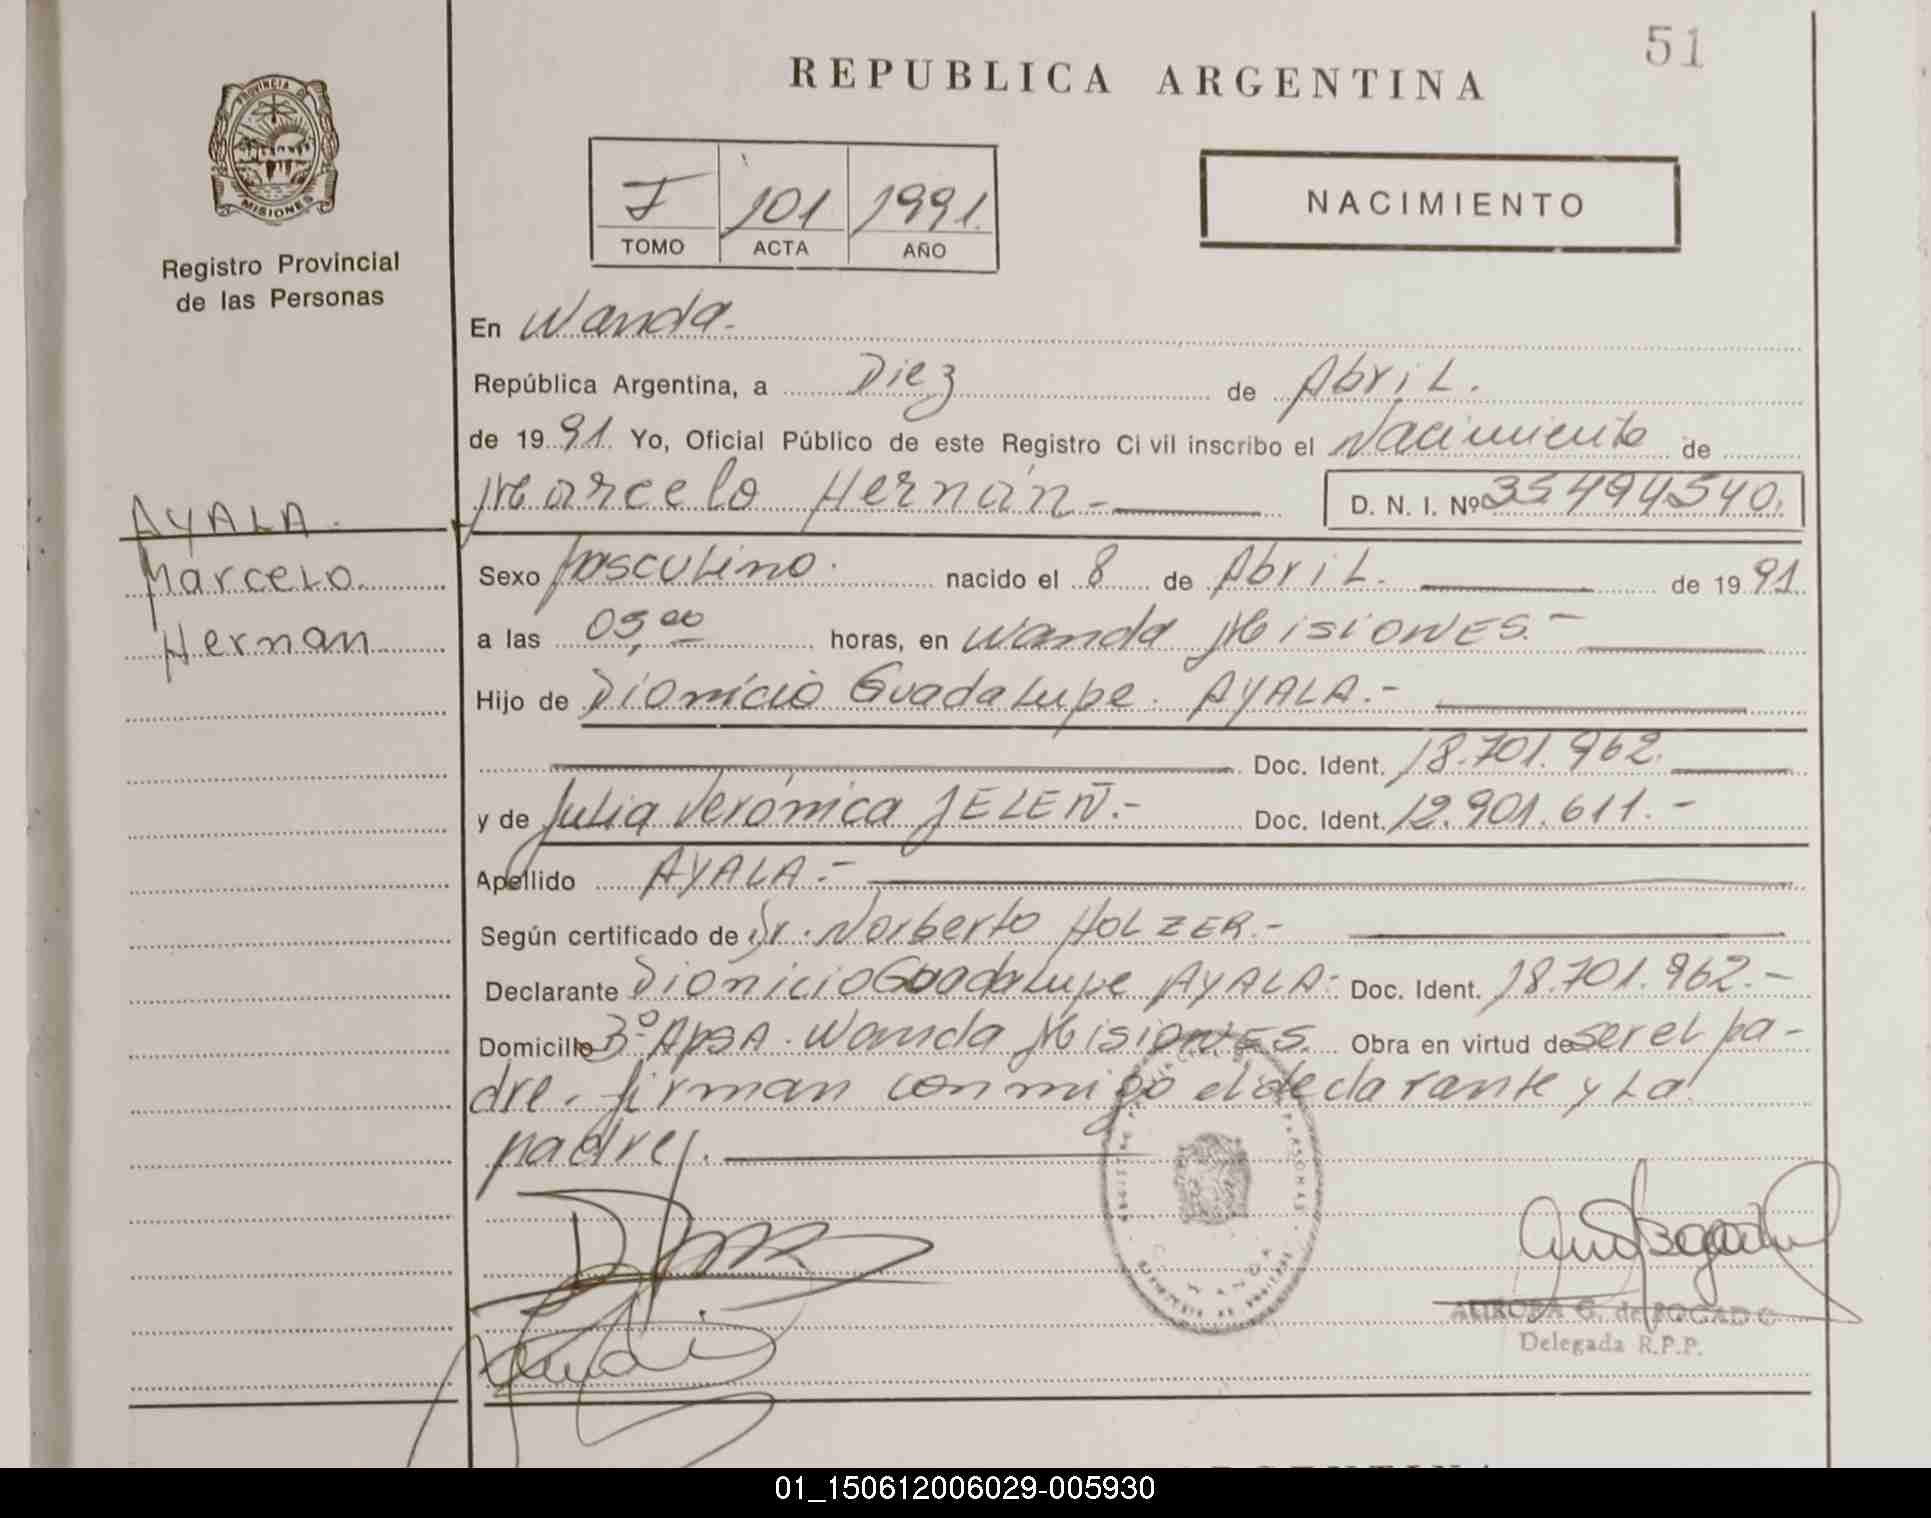 51
REPUBLICA ARGENTINA
PROVINCIA DE
MISIONES
Registro Provincial
de las Personas
I 101 1991.
TOMO ACTA AÑO
NACIMIENTO
En Wanda.-
República Argentina, a Diez de Abril.
de 1991. Yo, Oficial Público de este Registro Civil inscribo el Nacimiento de
Marcelo Hernán- D. N. I. Nº 35494540.
AYALA.
Marcelo
Hernan
Sexo Masculino. nacido el 8 de Abril. de 1991
a las 03,00 horas, en Wanda Misiones.-
Hijo de Dionicio Guadalupe. AYALA.-
Doc. Ident. 18.701.962.
y de Julia Verónica JELEÑ.- Doc. Ident. 12.901.611.-
Apellido AYALA.-
Según certificado de Dr. Norberto HOLZER.-
Declarante Dionicio Guadalupe AYALA- Doc. Ident. 18.701.962.-
Domicilio 3º Apsa. Wanda Misiones. Obra en virtud de ser el pa-
dre. firman conmigo el declarante y la
madre.
AURORA G. de BOGADO
Delegada R.P.P.
01_150612006029-005930